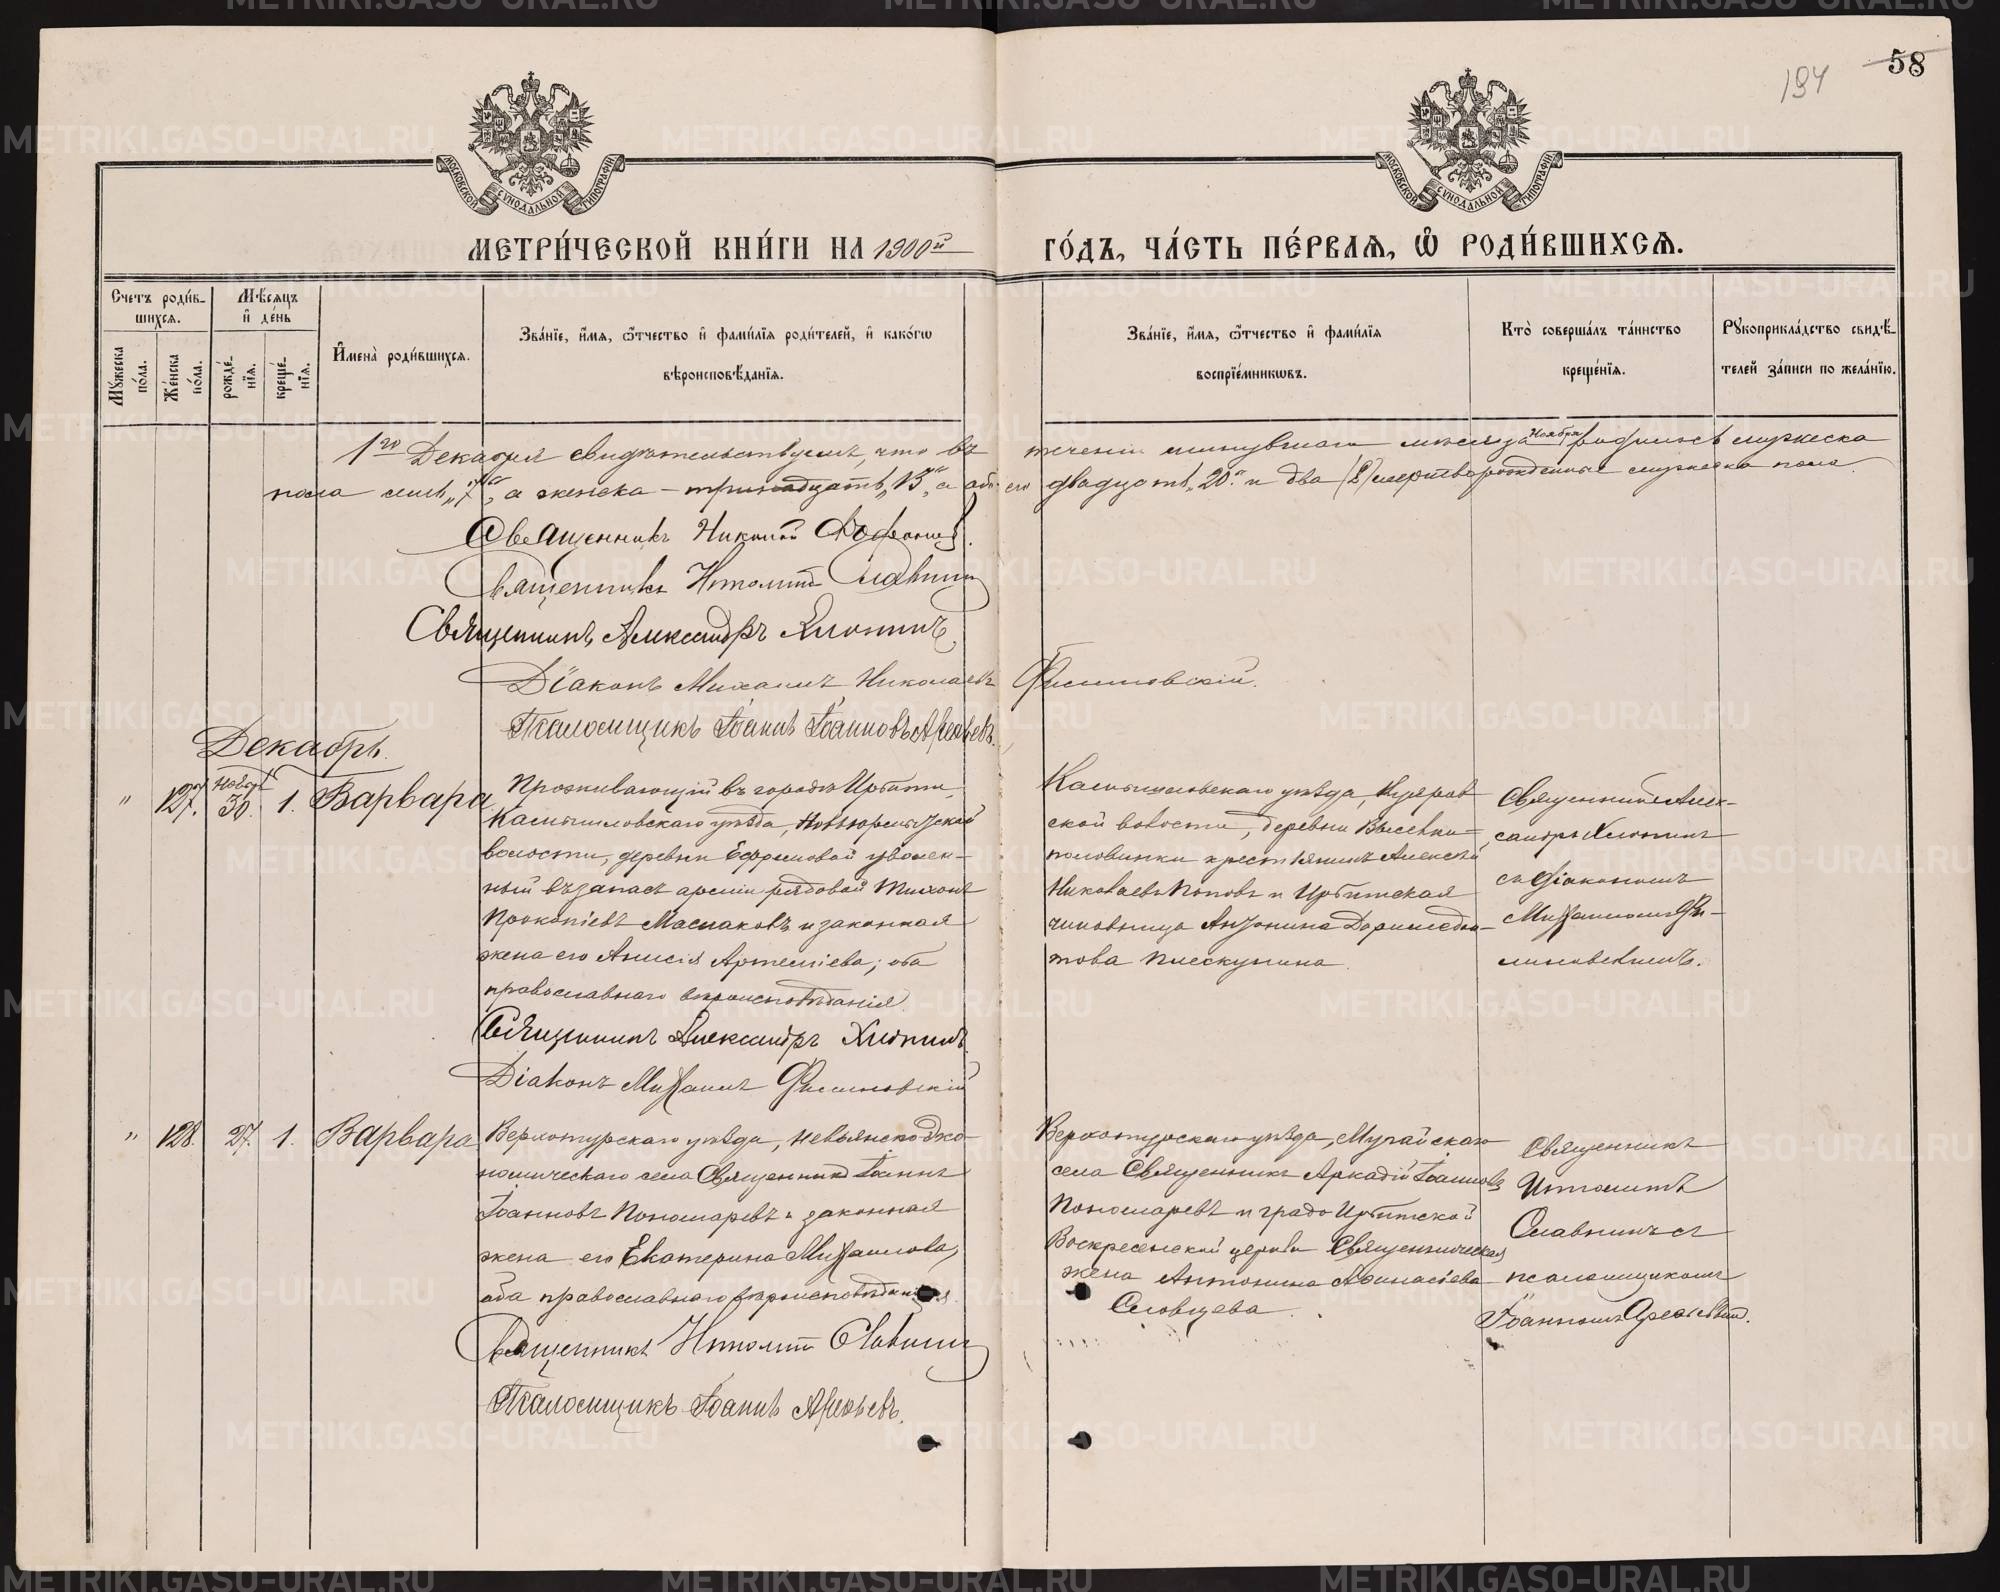 58
194
МОСКОВСКОЙ СѴНОДАЛЬНОЙ ТИПОГРАФІИ
МОСКОВСКОЙ СѴНОДАЛЬНОЙ ТИПОГРАФІИ
МЕТРИ́ЧЕСКОЙ КНИ́ГИ НА 1900й
ГО́ДЪ, ЧА́СТЬ ПЕ́РВАѦ, Ѡ҆ РОДИ́ВШИХСѦ.
Счетъ роди́в-
шихсѧ.
Мꙋ́жеска по́ла.
Же́нска по́ла.
Мѣ́сѧцъ
и҆ де́нь
рожде́-
нїѧ.
креще́-
нїѧ.
И҆мена̀ роди́вшихсѧ.
Зва́нїе, и҆́мѧ, ѻ҆́тчество и҆ фами́лїѧ роди́телей, и҆ како́гѡ
вѣроисповѣ́данїѧ.
Зва́нїе, и҆́мѧ, ѻ҆́тчество и҆ фами́лїѧ
воспрїе́мникѡвъ.
Кто̀ соверша́лъ та́инство
креще́нїѧ.
Рꙋкоприкла́дство свидѣ́-
телей за́писи по жела́нїю.
1го Декабря свидѣтельствуемъ, что въ течении минувшаго мѣсяца Ноября родились мужеска
пола семь „7“, а женска – тринадцать „13“, а обоего двадцать „20“ и два (2) мертворожденные мужеска пола.
Священникъ Николай
Священникъ Ипполитъ Славнинъ
Священникъ Александръ Хлопинъ
Діаконъ Михаилъ Николаевъ Филиновскій.
Псаломщикъ Іоаннъ Іоанновъ Арефьевъ.
Декабрь.
„ 127. Ноябр. 30. 1. Варвара
Проживающій въ городѣ Ирбити,
Камышловскаго уѣзда, Новоюрмытской
волости, деревни Ефремовой уволен-
ный въ запасъ арміи рядовой Тихонъ
Прокопіевъ Маслаковъ и законная
жена его Анисія Артеміева; оба
православнаго вѣроисповѣданія.
Священникъ Александръ Хлопинъ.
Діаконъ Михаилъ Филиновскій
Камышловскаго уѣзда, Куяров
ской волости, деревни
половинки крестьянинъ Алексѣй
Николаевъ Поповъ и Ирбитская
чиновница Антонина Доримедон-
това Плескунина.
Священникъ Алек-
сандръ Хлопинъ
съ діакономъ
Михаиломъ Фи-
линовскимъ.
„ 128. 27. 1. Варвара
Верхотурскаго уѣзда, Невьянско-Эко-
номическаго села Священникъ Іоаннъ
Іоанновъ Пономаревъ и законная
жена его Екатерина Михаилова,
оба православнаго вѣроисповѣданія.
Священникъ Ипполитъ Славнинъ
Псаломщикъ Іоаннъ Арефьевъ.
Верхотурскаго уѣзда, Мугайскаго
села Священникъ Аркадій Іоанновъ
Пономаревъ и градо Ирбитской
Воскресенской церкви Священническая
жена Антонина Афанасіева
Словцева.
Священникъ
Ипполитъ
Славнинъ съ
псаломщикомъ
Іоанномъ Арефьевымъ.
METRIKI.GASO-URAL.RU